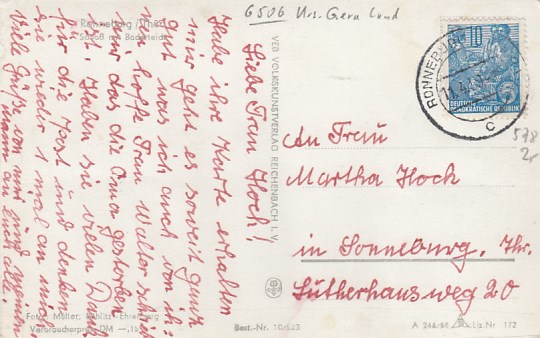 6506 Krs. Gera Land
Ronneburg Thür.
Schloß m. Baderteich
Liebe Frau Hoch!
Habe ihre Karte erhalten
mir geht es soweit ganz
gut was ich auch von ih=
nen hoffe Frau Walter schrieb
mir das die Oma gestorben
ist. Haben sie vielen Dank
für die Post und denken
sie wieder 1 mal an mich.
Viele Grüße von mir und meinen
Mann an Euch alle.
Foto: Müller, Ehrenberg
Verbraucherpreis DM —,15
VEB VOLKSKUNSTVERLAG REICHENBACH I. V.
Best.-Nr. 10
RONNEBURG
c
10
DEUTSCHE
DEMOKRATISCHE REPUBLIK
578
2,-
An Frau
Martha Hoch
in Sonneburg, Thr.
Lutherhausweg 20
Liz.-Nr. 172